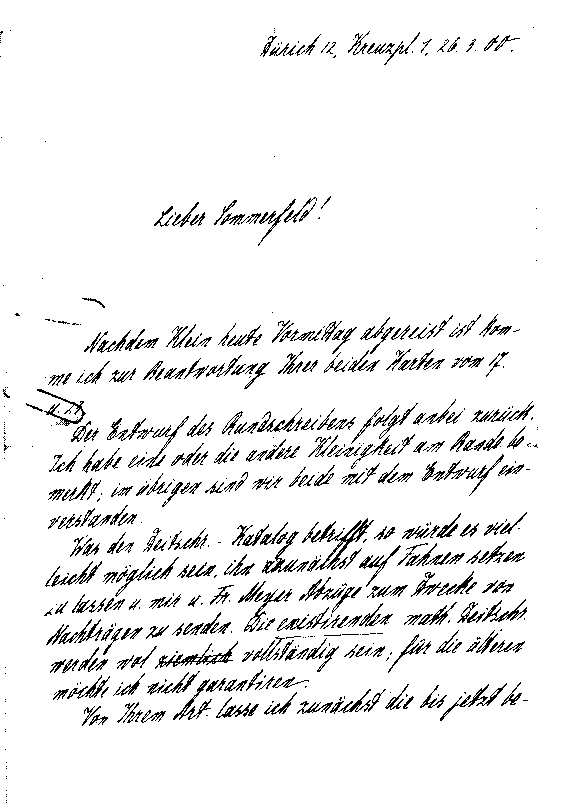 Zürich 12, Kreuzpl. 1, 26.3.00.
Lieber Sommerfeld!
Nachdem Klein heute Vormittag abgereist ist kom-
me ich zur Beantwortung Ihrer beiden Karten vom 17.
u. 21
Der Entwurf des Rundschreibens folgt anbei zurück.
Ich habe eine oder die andere Kleinigkeit am Rande be-
merkt; im übrigen sind wir beide mit dem Entwurf ein-
verstanden.
Was den Zeitschr.-Katalog betrifft, so würde es viel-
leicht möglich sein, ihn zunächst auf Fahnen setzen
zu lassen u. mir u. Fr. Meyer Abzüge zum Zwecke von
Nachträgen zu senden. Die existirenden math. Zeitschr.
werden wol ziemlich vollständig sein; für die älteren
möchte ich nicht garantiren.
Von Ihrem Art. lasse ich zunächst die bis jetzt be-